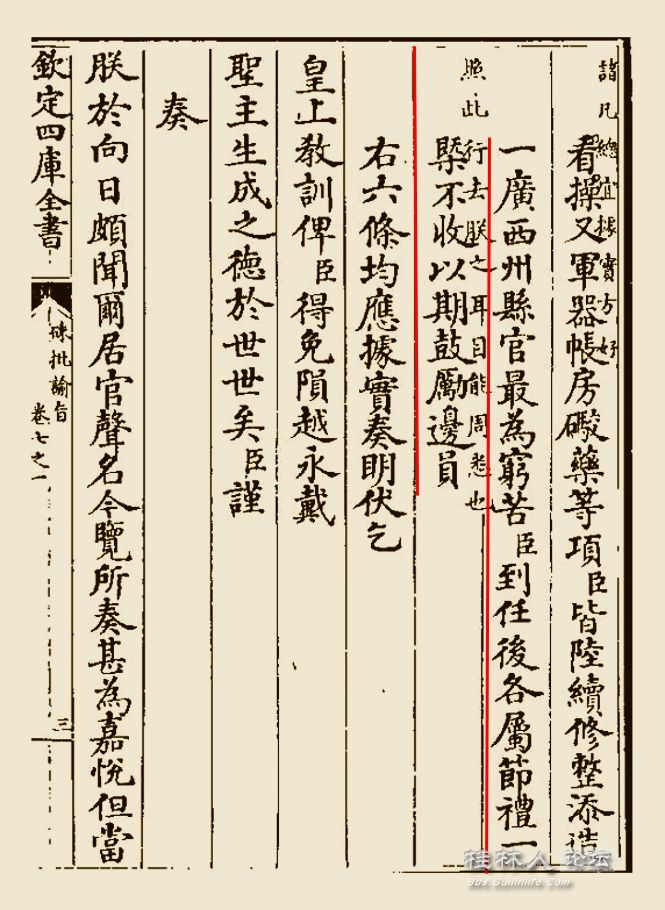 諸凡總宜據實方好
看操又軍器帳房礮藥等項臣皆陸續修整添造
一廣西州縣官最為窮苦臣到任後各屬節禮一
照此行去朕之耳目能周悉也
槩不收以期鼓勵邊員
右六條均應據實奏明伏乞
皇上教訓俾臣得免隕越永戴
聖主生成之德於世世矣臣謹
奏
朕於向日頗聞爾居官聲名今覽所奏甚為嘉悅但當
欽定四庫全書
硃批諭旨
卷七之一
三
桂林人论坛
bbs.Guilinlife.com